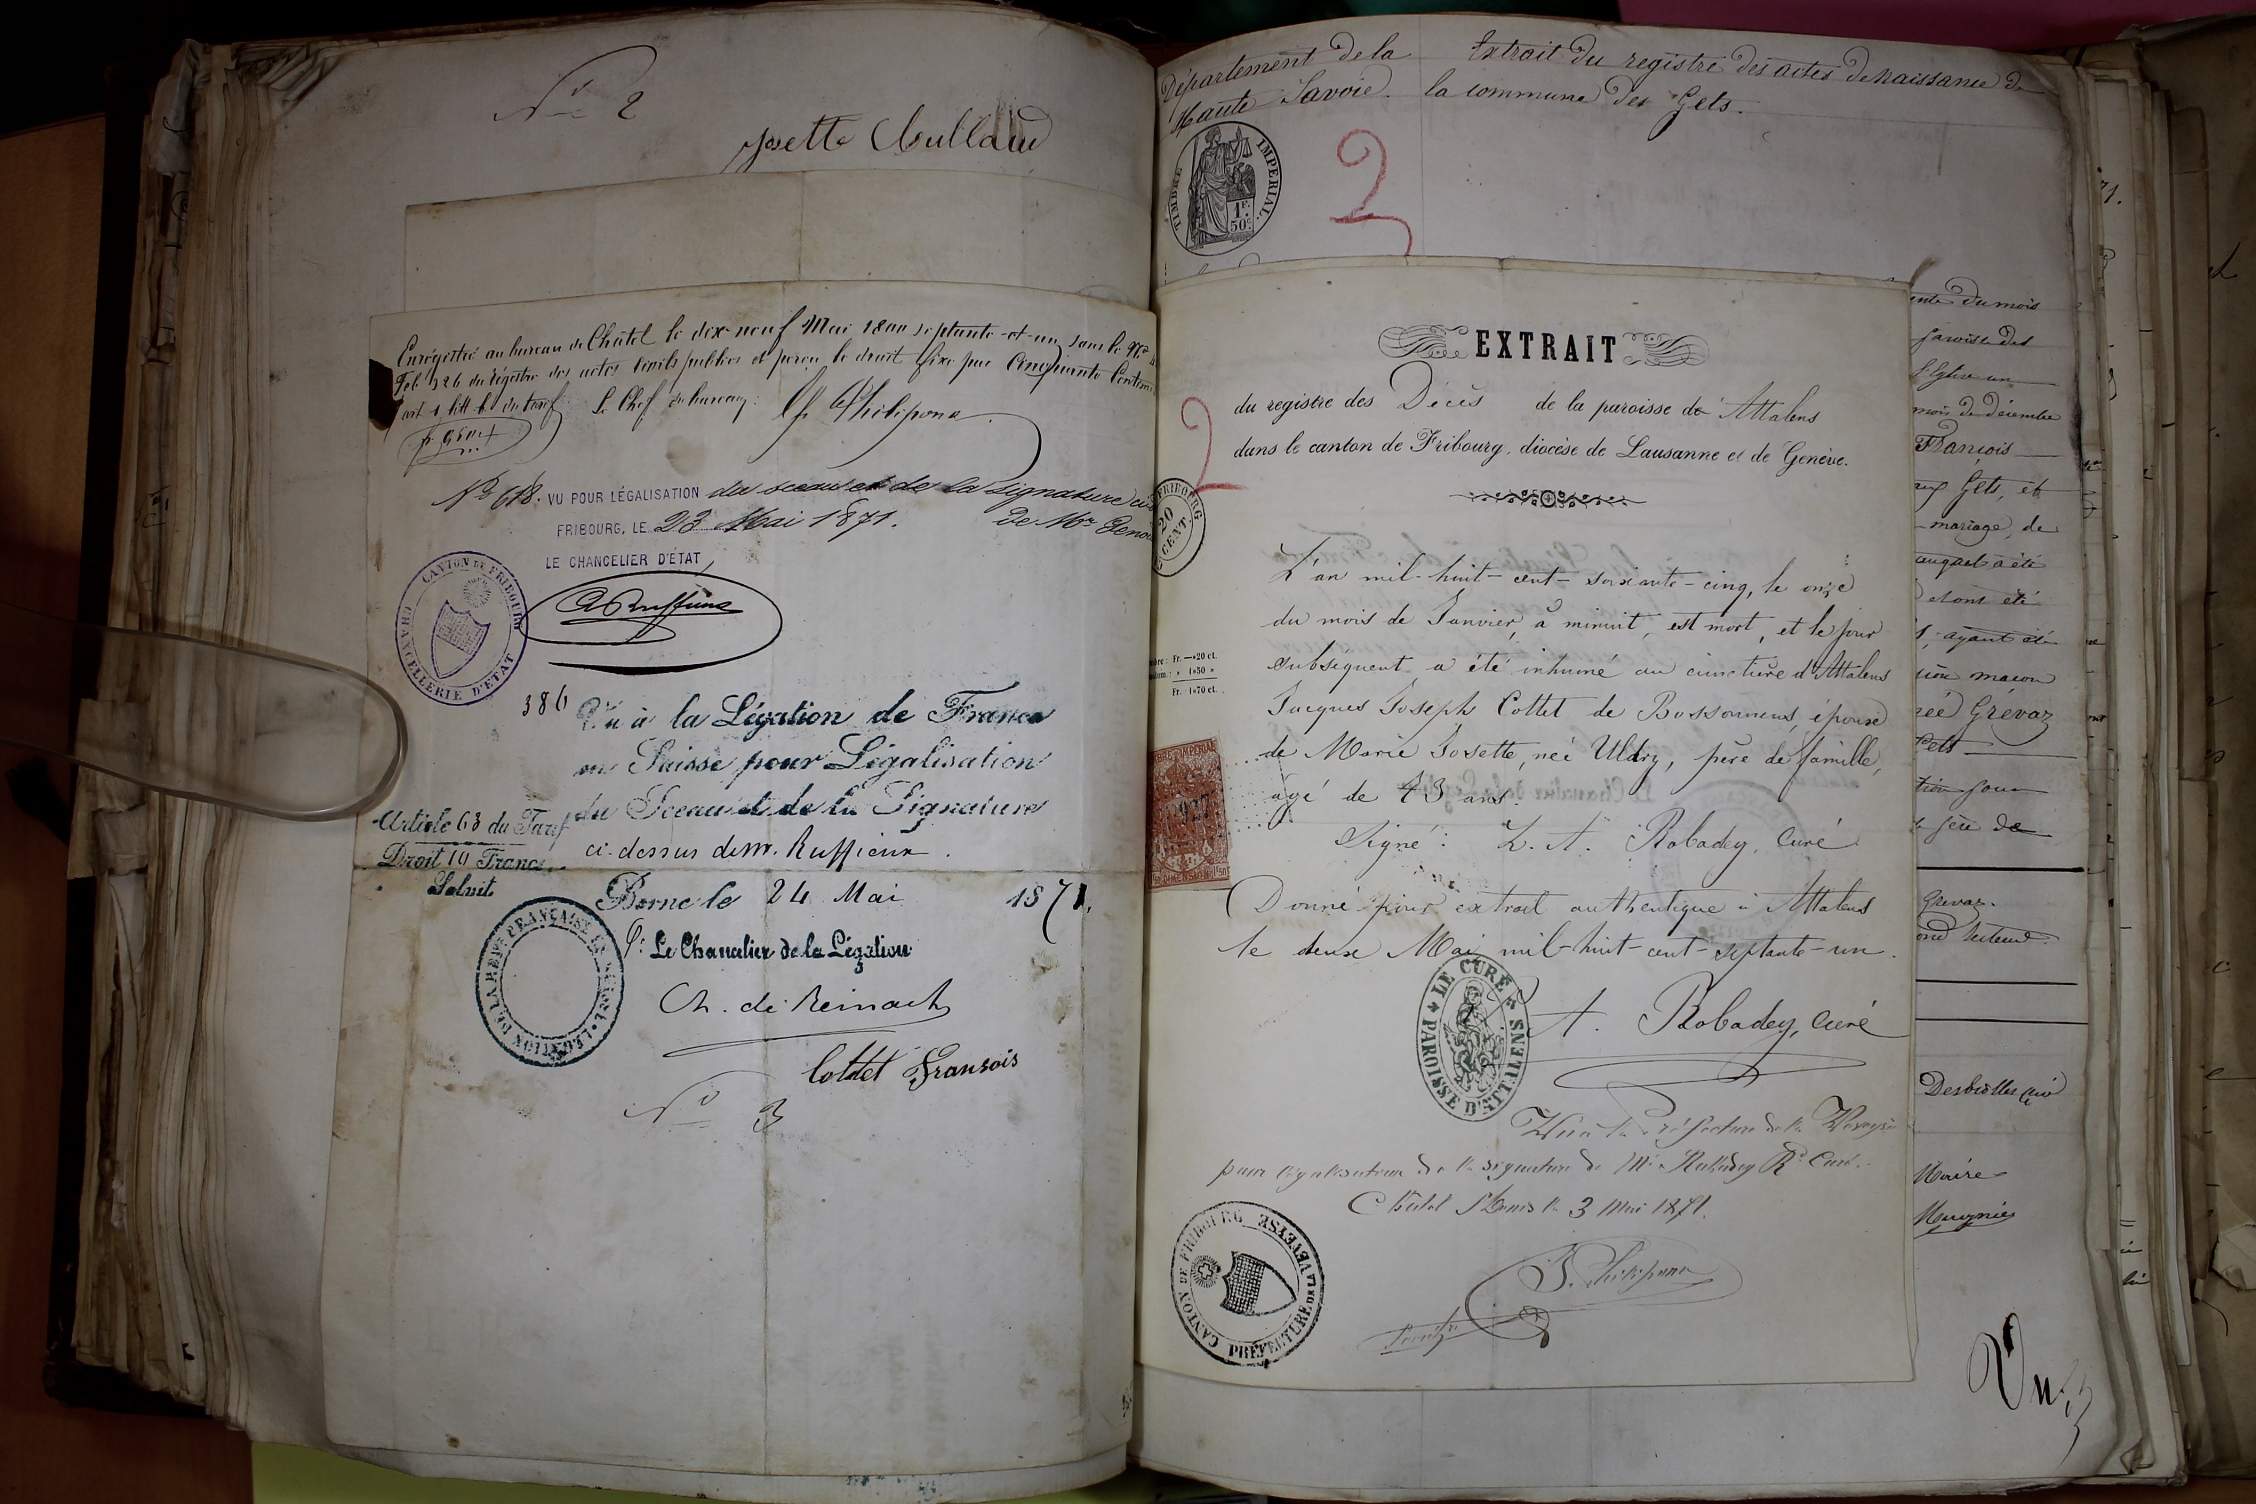 N° 2
Josette Bullaud
Enrégistré au bureau de Châtel le dix-neuf Mai 18cent septante-et-un sous le N°
Fol. 126 du régistre des actes civils publics et perçu le droit fixe par Cinquante Centimes
art. 1 litt. b. du tarif. Le Chef du bureau: Philipona
N° 618. VU POUR LÉGALISATION du sceau et de la signature ci
FRIBOURG, LE 23 Mai 1871. de Mr Genou
LE CHANCELIER D'ÉTAT,
CANTON DE FRIBOURG
CHANCELLERIE D'ETAT
386 Vu à la Légation de France
en Suisse pour Légalisation
du Sceau et de la Signature
ci-dessus de M. Ruffieux.
Article 63 du Tarif
Droit 10 Francs
Solvit
Berne le 24 Mai 1871.
Pr Le Chancelier de la Légation
Ch. de Reinach
LÉGATION DE LA REPE FRANÇAISE EN SUISSE
Cottet Fransois
N° 3
Département de la
Haute Savoie.
Extrait du registre des actes de naissance de
la commune des Gets.
TIMBRE IMPERIAL
1F. 50C.
2
EXTRAIT
du registre des Décès de la paroisse de Attalens
dans le canton de Fribourg, diocèse de Lausanne et de Genève.
2
FRIBOURG
20
CENT.
L'an mil-huit-cent-soixante-cinq, le onze
du mois de Janvier, à minuit, est mort, et le jour
subséquent a été inhumé au cimetière d'Attalens
Jacques Joseph Cottet de Bossonnens, époux
de Marie Josette, née Uldry, père de famille,
âgé de 43 ans.
Signé: L. A. Robadey, Curé
Fr. —»20 ct.
1»50 »
Fr. 1»70 ct.
927
Donné pour extrait authentique à Attalens
le deux Mai mil-huit-cent-septante-un.
A. Robadey, curé
LE CURÉ
PAROISSE D'ATTALENS
Vu à la Préfecture de la Veveyse
pour légalisation de la signature de Mr Robadey Rd Curé.
Châtel St Denis le 3 Mai 1871.
J. Philipona
CANTON DE FRIBOURG
PRÉFECTURE DE LA VEVEYSE
du mois
paroisse des
l'Eglise un
mois de décembre
François
Gets, et
mariage, de
auquel a été
et ont été
ayant été
maçon
née Grévaz
Gets
Grevaz.
Desbiolles curé
Maire
Mugnier
Vu